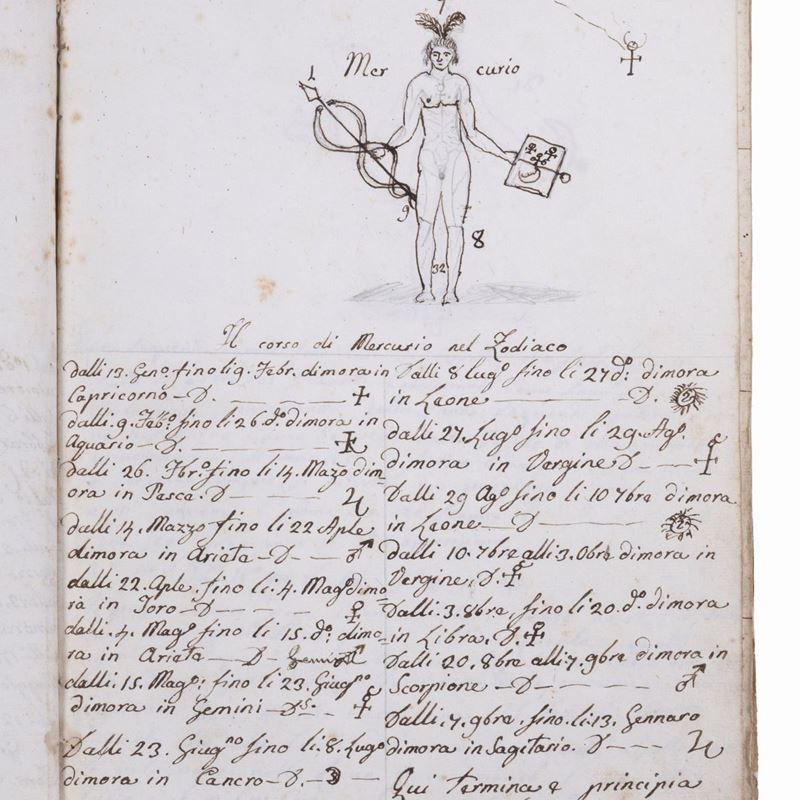 1
Mercurio
9
8
32
Il corso di Mercurio nel Zodiaco
dalli 13. Geno. fino li 9. Febr. dimora in
Capricorno – D.
dalli 9. Febo. fino li 26 do. dimora in
Aquario – D.
dalli 26. Fbro. fino li 14. Mazo dim
ora in Pesca. D
dalli 14. Mazzo fino li 22 Aple
dimora in Arieta – D – ♂
dalli 22. Aple. fino li. 4. Mago. dimo
ra in Toro – D – ♀
dalli. 4. Mago. fino li 15. do. dimo=
ra in Arieta – D –
dalli. 15. Mago: fino li 23. Giugno
dimora in Gemini – Do. –
Dalli 23. Giugno fino li. 8. Lugo
dimora in Cancro – D. – ☽ –
Dalli 8 lugo fino li 27 do: dimora
in Leone – D.
dalli 27. Lugo fino li 29. Ago.
dimora in Vergine D –
Dalli 29 Ago fino li 10 7bre dimora
in Leone – D
dalli 10. 7bre alli 3. 0bre dimora in
Vergine, D.
Dalli. 3. 8bre, fino li 20. do. dimora
in Libra. D. ♀
Dalli 20. 8bre alli 7. 9bre dimora in
Scorpione – D – ♂
Dalli. 7. 9bre, fino. li 13. Gennaro
dimora in Sagitario. D – ♃
Qui termina e principia